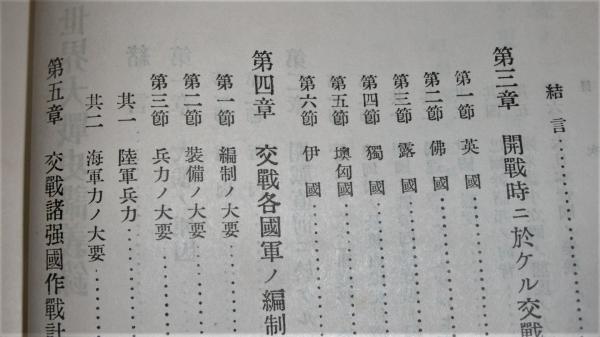 結言
第三章 開戰時ニ於ケル交戰
第一節 英國
第二節 佛國
第三節 露國
第四節 獨國
第五節 墺匈國
第六節 伊國
第四章 交戰各國軍ノ編制
第一節 編制ノ大要
第二節 裝備ノ大要
第三節 兵力ノ大要
其一 陸軍兵力
其二 海軍力ノ大要
第五章 交戰諸强國作戰計